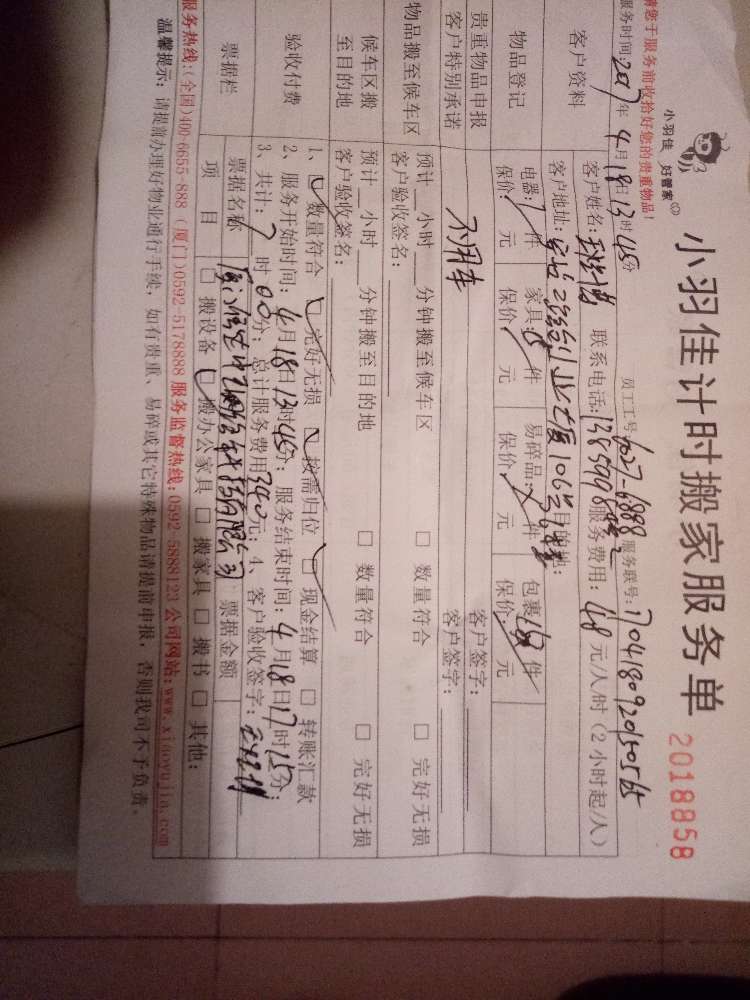 小羽佳 好管家
小羽佳计时搬家服务单
2018858
请您于服务前收拾好您的贵重物品!
员工工号: 服务联号:
服务时间:2017年4月18日13时45分
客户资料
客户姓名: 联系电话: 服务费用:48元/人/时(2小时起/人)
客户地址: 目的地:
物品登记
电器: 件 家具: 件 易碎品: 件 包裹: 件
保价: 元 保价: 元 保价: 元 保价: 元
贵重物品申报 客户签字:
客户特别承诺 不用车 客户签字:
物品搬至候车区
预计__小时__分钟搬至候车区 □ 数量符合 □ 完好无损
客户验收签名:
候车区搬至目的地
预计__小时__分钟搬至目的地 □ 数量符合 □ 完好无损
客户验收签名:
验收付费
1、□ 数量符合 □ 完好无损 □ 按需归位 □ 现金结算 □ 转账汇款
2、服务开始时间:4月18日13时45分;服务结束时间:4月18日17时15分;
3、共计:7时00分;总计服务费用340元;4、客户验收签字:
票据栏
票据名称 票据金额
项目 □ 搬设备 □ 搬办公家具 □ 搬家具 □ 搬书 □ 其他:
服务热线:(全国)400-6655-888 (厦门)0592-5178888 服务监督热线:0592-5888123 公司网站:www.xiaoyujia.com
温馨提示:请提前办理好物业通行手续,如有贵重、易碎或其它特殊物品请提前申报,否则我司不予负责。